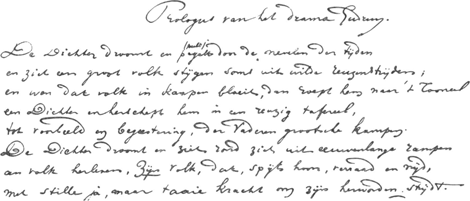 Prologus van het drama Gudrun.
De Dichter droomt en door de nevelen der tijden
en ziet een groot volk stijgen soms uit wilde reuzenstrijden;
en was dat volk in kampen bleit, dan roept hem naar 't Tooneel
een Dichter en herschept hem in een reuzig tafereel,
tot voorbeeld en begeestering, der Vaderen grootsche kampen.
De Dichter droomt en ziet rond zich, uit eeuwenlange rampen
een volk herleven, Zijn volk, dat, spijts hoon, verraad en nijd,
met stille ja, maar taaie kracht om zijn herworden strijdt.